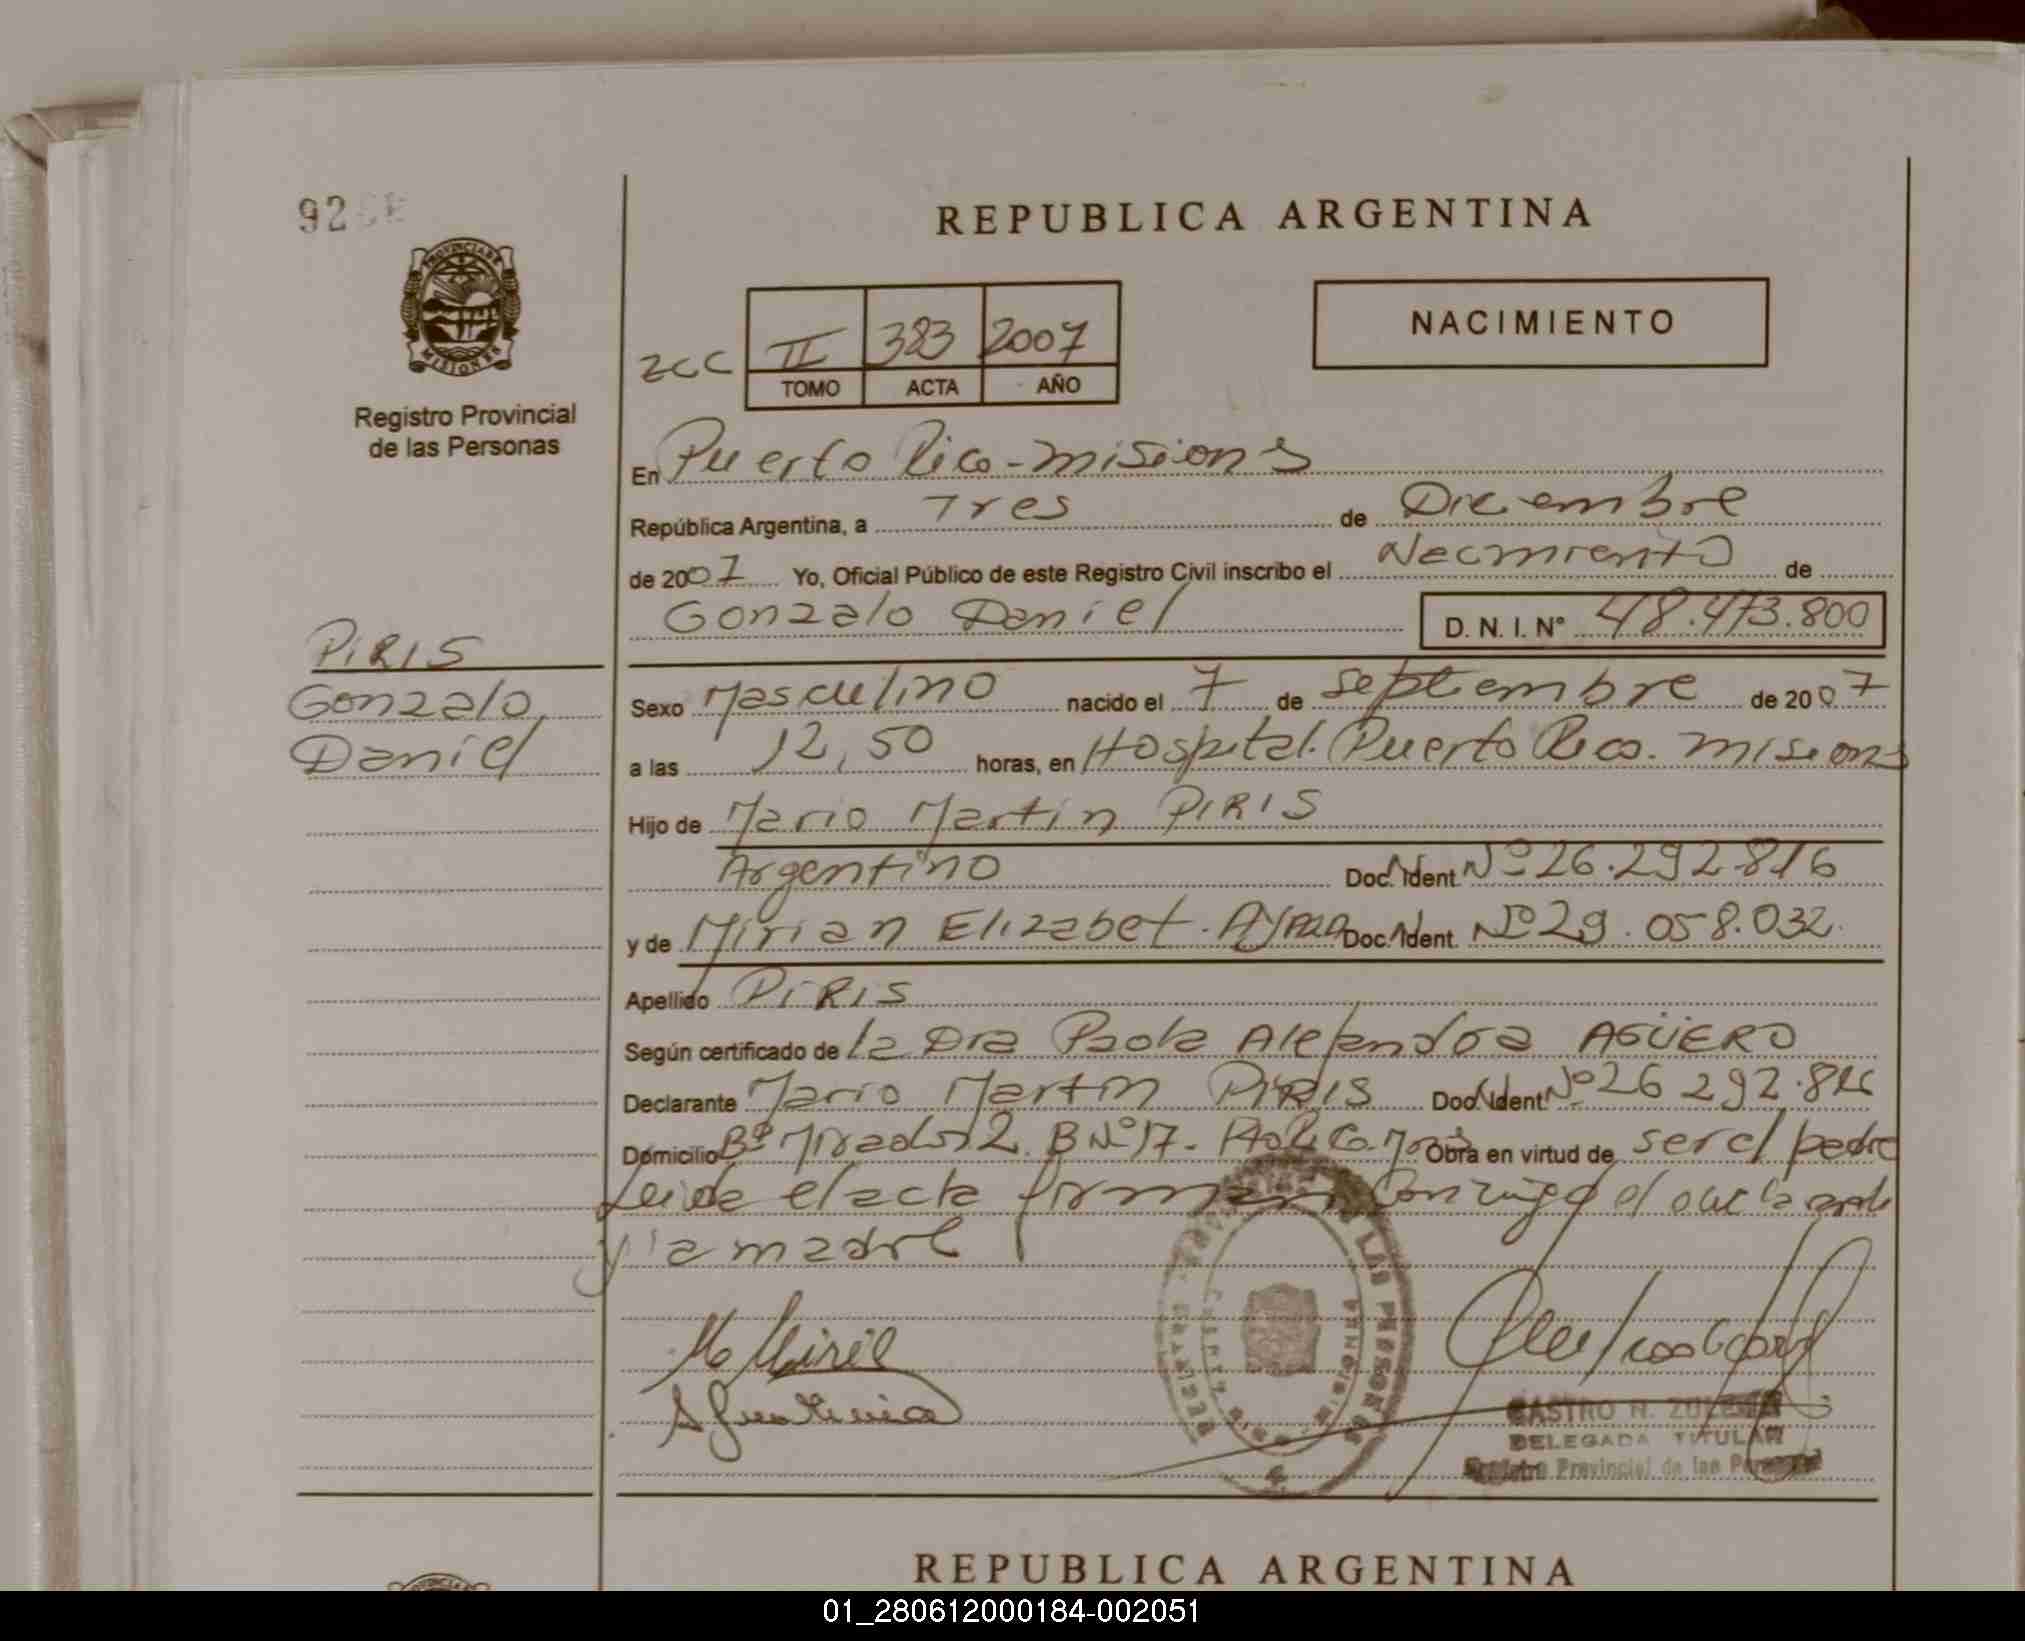 92
PROVINCIA DE
MISIONES
Registro Provincial
de las Personas
REPUBLICA ARGENTINA
NACIMIENTO
2CC II 383 2007
TOMO ACTA AÑO
En Puerto Rico - misiones
República Argentina, a Tres de Diciembre
de 2007 Yo, Oficial Público de este Registro Civil inscribo el Nacimiento de
Gonzalo Daniel D. N. I. N° 48.473.800
PIRIS
Gonzalo
Daniel
Sexo Masculino nacido el 7 de septiembre de 2007
a las 12,50 horas, en Hospital. Puerto Rico. misiones
Hijo de Mario Martin PIRIS
Argentino Doc. Ident. Nº 26.292.816
y de Mirian Elizabet. AYALA Doc. Ident. Nº 29.058.032.
Apellido PIRIS
Según certificado de la Dra Paola Alejandra AGÜERO
Declarante Mario Martin PIRIS Doc. Ident. Nº 26 292.816
Domicilio Bº Mirador 2. B Nº 17- Obra en virtud de ser el padre
Leida el acta firman conmigo el declarante
y la madre
CASTRO N.
DELEGADA TITULAR
Registro Provincial de las Personas
REPUBLICA ARGENTINA
01_280612000184-002051